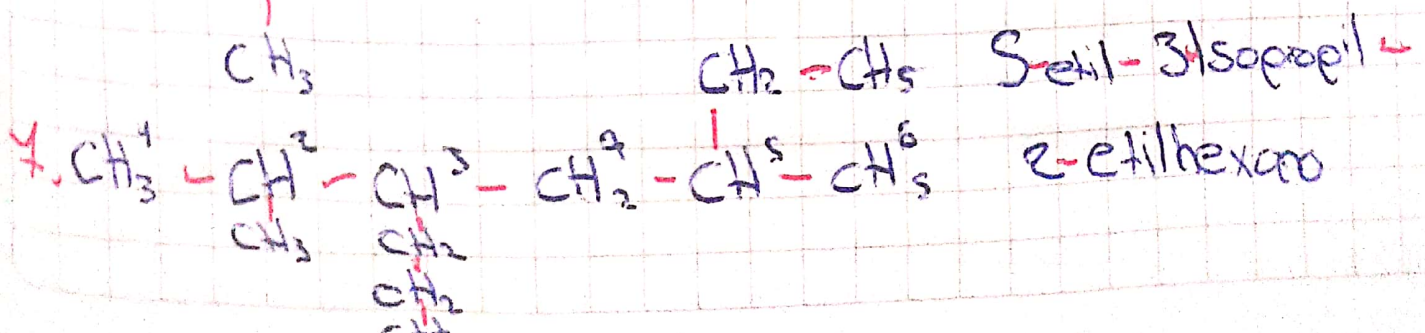 CH3
CH2 - CH3 5-etil-3-Isopropil-
7. CH3 1 - CH 2 - CH 3 - CH2 4 - CH 5 - CH3 6 2-etilhexano
CH3 CH2
CH2